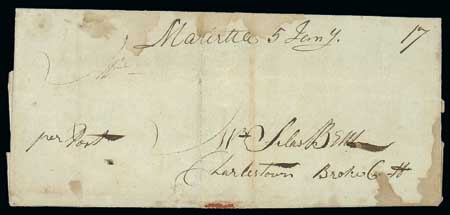 Marietta 5 Jany. 17
per Post
Mr Silas Bent
Charlestown Brooke C H